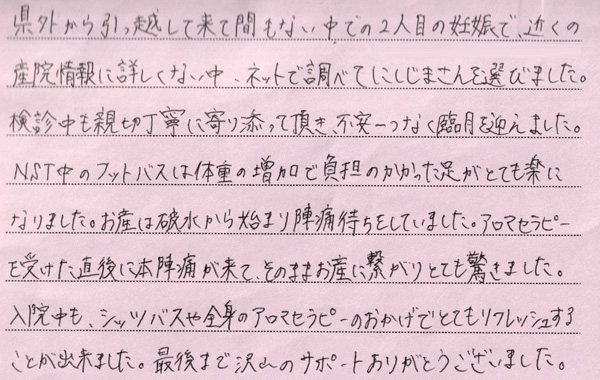 県外から引っ越して来て間もない中での2人目の妊娠で、近くの
産院情報に詳しくない中、ネットで調べてにしじまさんを選びました。
検診中も親切丁寧に寄り添って頂き、不安一つなく臨月を迎えました。
NST中のフットバスは体重の増加で負担のかかった足がとても楽に
なりました。お産は破水から始まり陣痛待ちをしていました。アロマセラピー
を受けた直後に本陣痛が来て、そのままお産に繋がりとても驚きました。
入院中も、シッツバスや全身のアロマセラピーのおかげでとてもリフレッシュする
ことが出来ました。最後まで沢山のサポートありがとうございました。